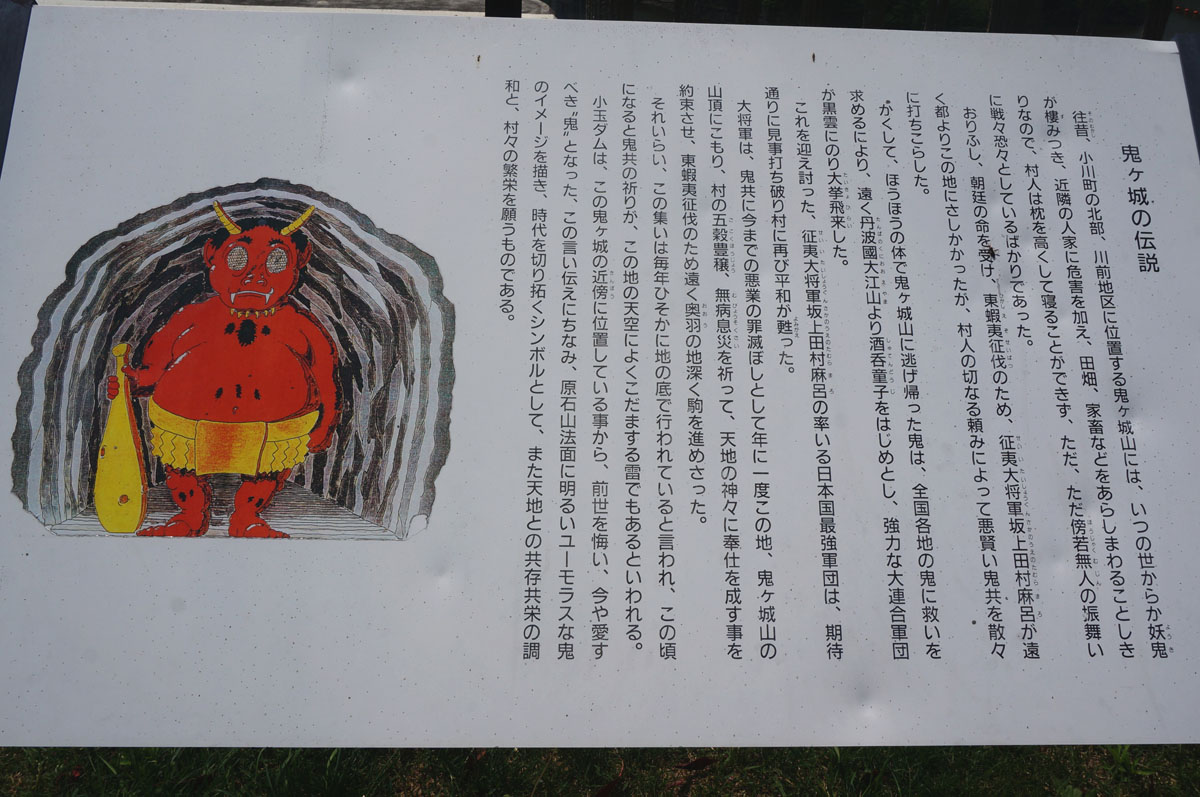 鬼ヶ城の伝説
往昔、小川町の北部、川前地区に位置する鬼ヶ城山には、いつの世からか妖鬼
が棲みつき、近隣の人家に危害を加え、田畑、家畜などをあらしまわることしき
りなので、村人は枕を高くして寝ることができず、ただ、ただ傍若無人の振舞い
に戦々恐々としているばかりであった。
おりふし、朝廷の命を受け、東蝦夷征伐のため、征夷大将軍坂上田村麻呂が遠
く都よりこの地にさしかかったが、村人の切なる頼みによって悪賢い鬼共を散々
に打ちこらした。
かくして、ほうほうの体で鬼ヶ城山に逃げ帰った鬼は、全国各地の鬼に救いを
求めるにより、遠く丹波國大江山より酒呑童子をはじめとし、強力な大連合軍団
が黒雲にのり大挙飛来した。
これを迎え討った、征夷大将軍坂上田村麻呂の率いる日本国最強軍団は、期待
通りに見事打ち破り村に再び平和が甦った。
大将軍は、鬼共に今までの悪業の罪滅ぼしとして年に一度この地、鬼ヶ城山の
山頂にこもり、村の五穀豊穣、無病息災を祈って、天地の神々に奉仕を成す事を
約束させ、東蝦夷征伐のため遠く奥羽の地深く駒を進めさった。
それいらい、この集いは毎年ひそかに地の底で行われていると言われ、この頃
になると鬼共の祈りが、この地の天空によくこだまする雷でもあるといわれる。
小玉ダムは、この鬼ヶ城の近傍に位置している事から、前世を悔い、今や愛す
べき〝鬼〟となった、この言い伝えにちなみ、原石山法面に明るいユーモラスな鬼
のイメージを描き、時代を切り拓くシンボルとして、また天地との共存共栄の調
和と、村々の繁栄を願うものである。